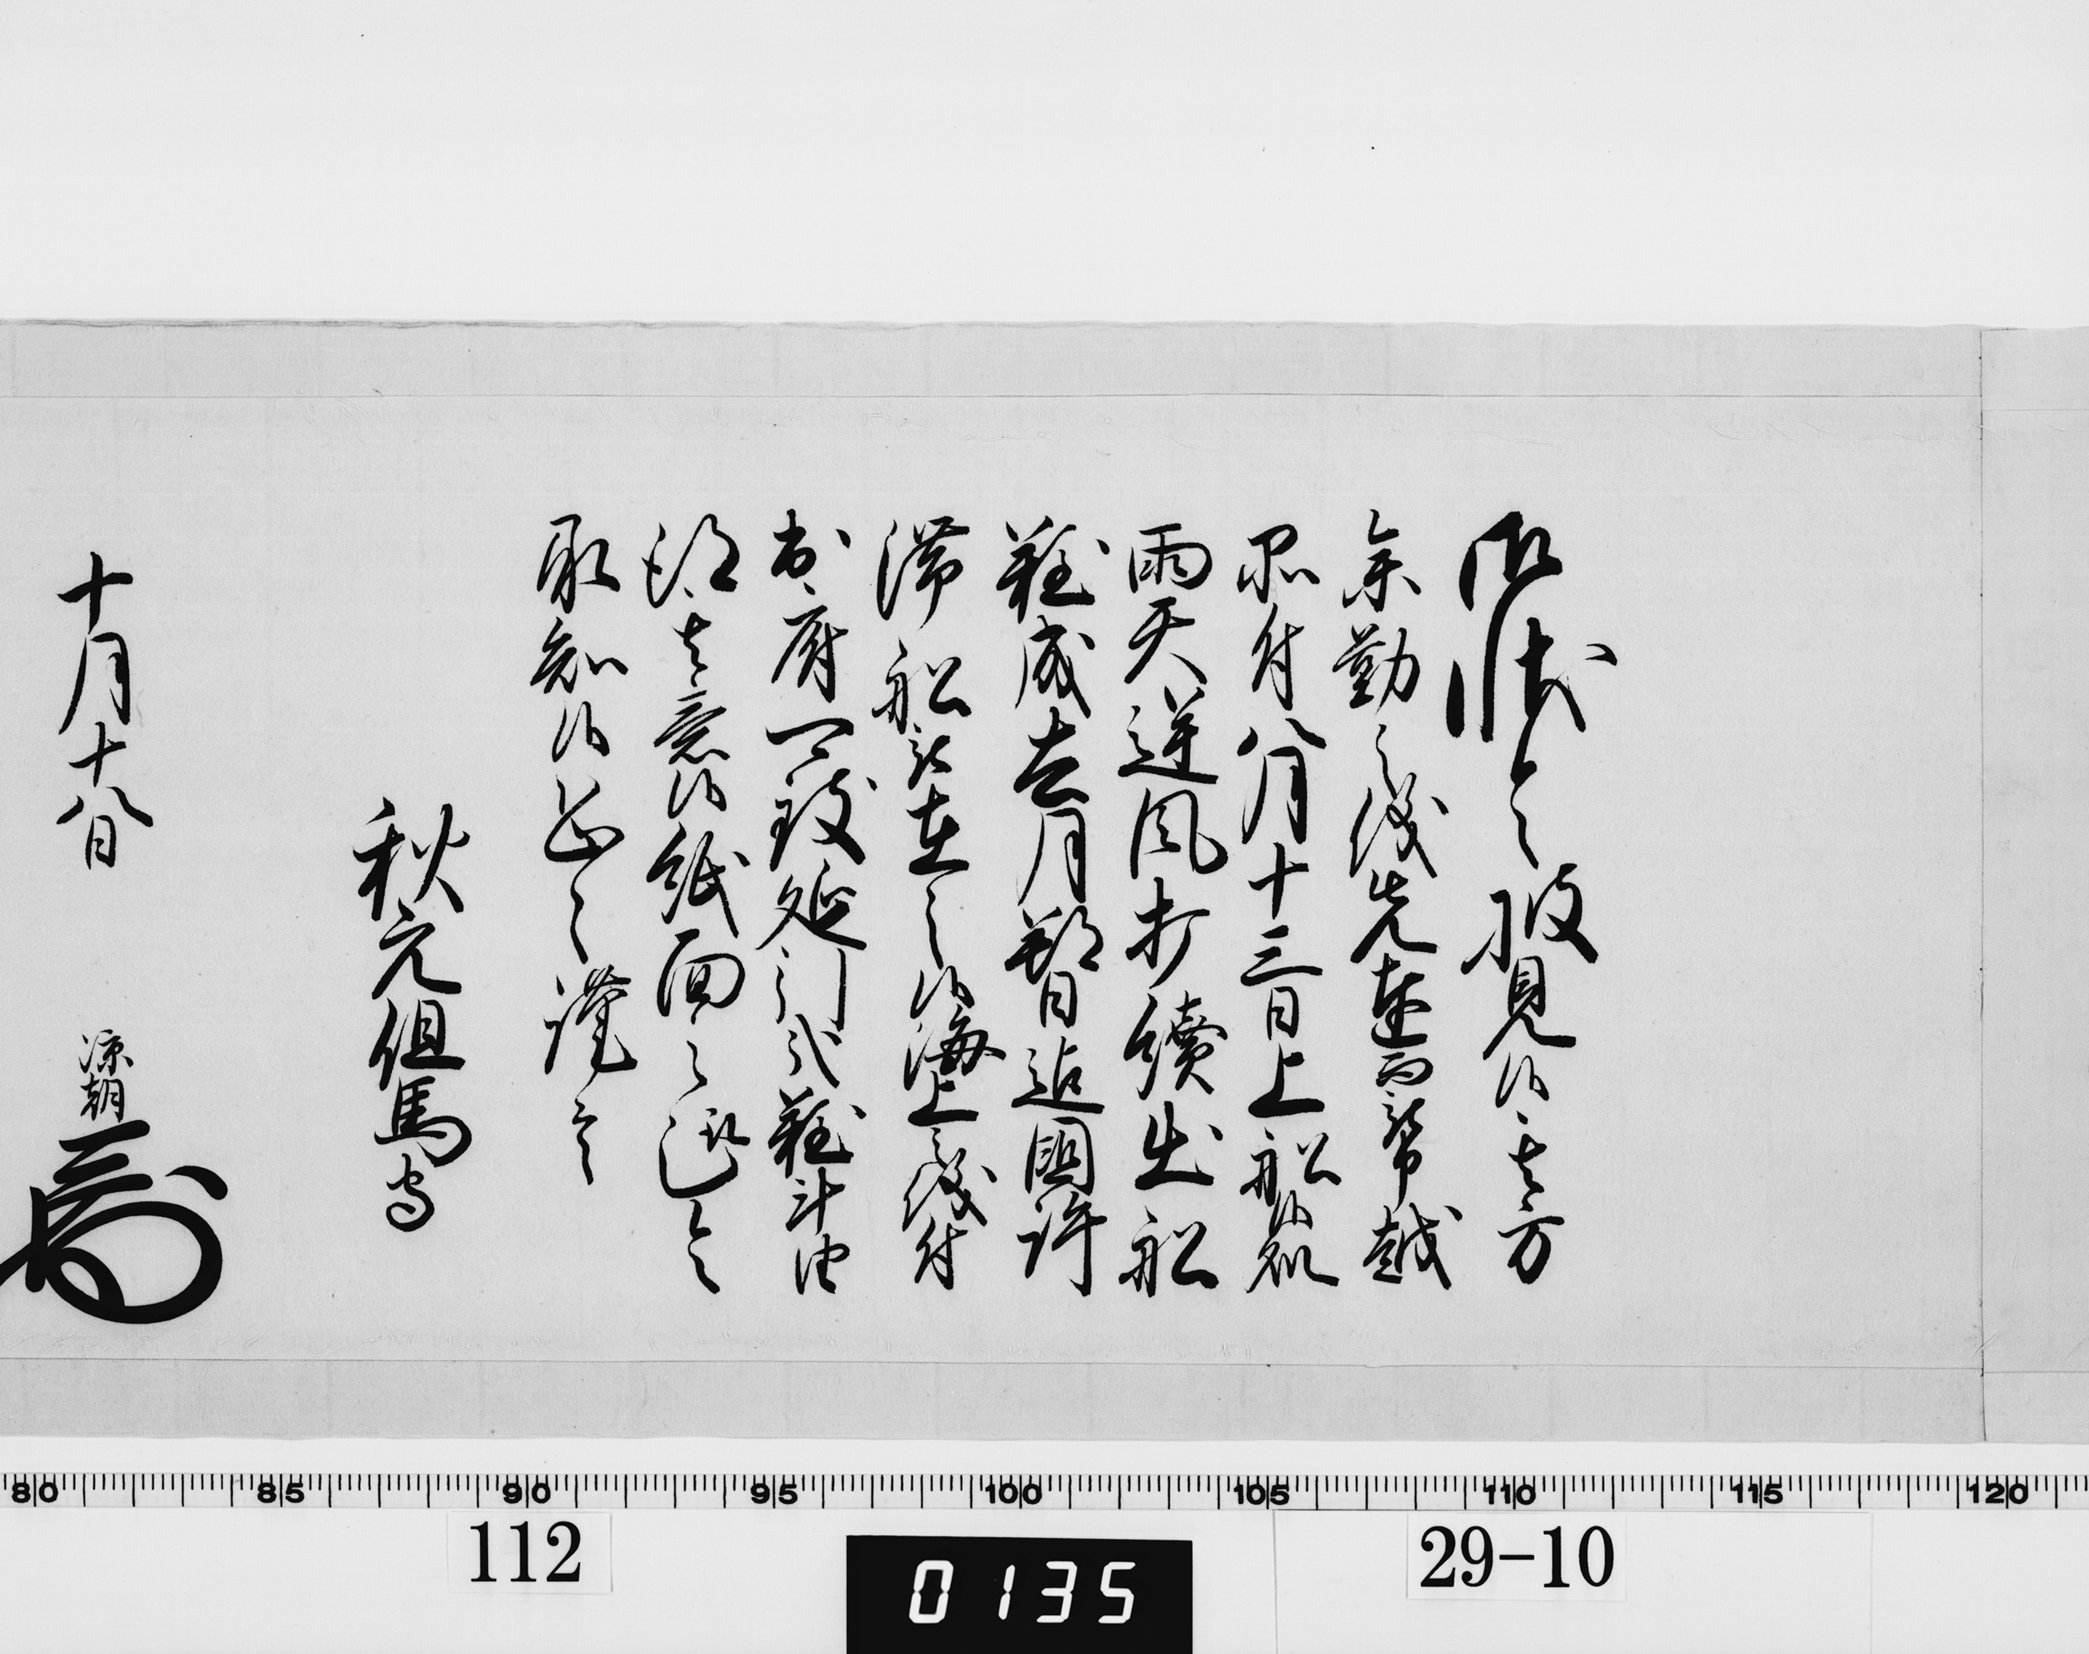 御状令披見候其方
参勤之儀先達而被申越
付八月十三日上船候処
雨天逆風打續出船
難成去月朔日迄國許
滞船被在之候海上之儀付
出府可致延引哉難斗由
得其意候紙面之趣令
承知候恐々謹言
秋元但馬守
十月十八日 凉朝
80 85 90 95 100 105 110 115 120
112 0135 29-10